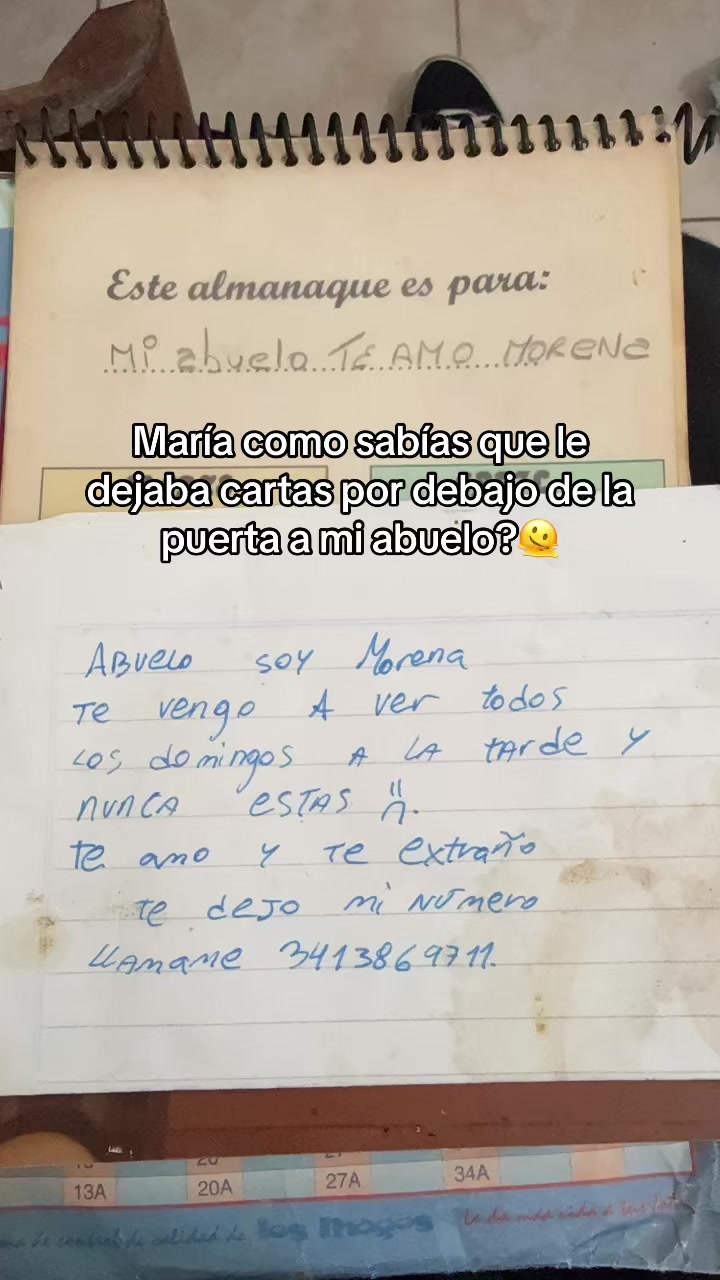 Este almanaque es para:
Mi abuelo TE AMO MORENA
María como sabías que le
dejaba cartas por debajo de la
puerta a mi abuelo?🫠
ABUELO SOY Morena
Te vengo A ver todos
LOS domingos A LA tArde y
nunca ESTAS
te amo y Te extraño
Te deJo mi NÚmero
LLAMAME 3413869711.
13A 20A 27A 34A
control de calidad de los magos